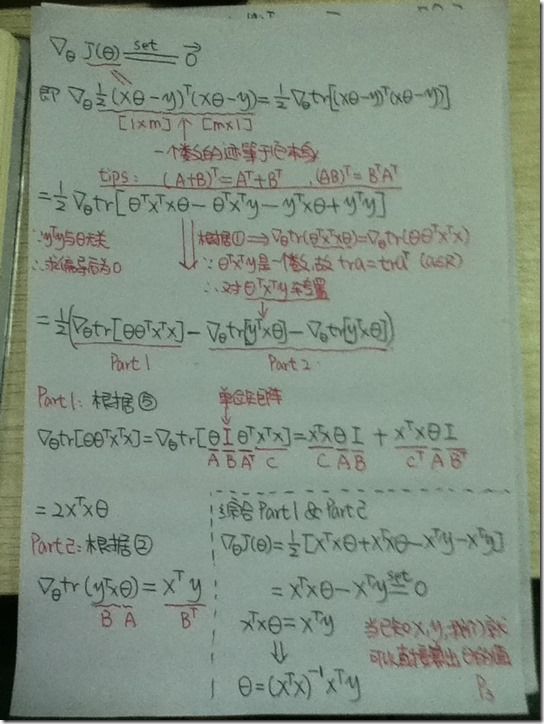 ∇θ J(θ) set= 0⃗
即 ∇θ ½(Xθ-y)ᵀ(Xθ-y)=½∇θtr[(Xθ-y)ᵀ(Xθ-y)]
[1×m] [m×1]
一个数的迹等于它本身
tips: (A+B)ᵀ=Aᵀ+Bᵀ .(AB)ᵀ=BᵀAᵀ
=½∇θtr[θᵀXᵀXθ-θᵀXᵀy-yᵀXθ+yᵀy]
∵yᵀy与θ无关
∴求偏导后为0
根据①⇒∇θtr(θᵀXᵀXθ)=∇θtr(θθᵀXᵀX)
∵θᵀXᵀy是一个数,故 tra=traᵀ (a∈R)
∴对θᵀXᵀy转置
=½(∇θtr[θθᵀXᵀX]-∇θtr[yᵀXθ]-∇θtr[yᵀXθ])
Part1 Part2
Part1: 根据⑤ 单位矩阵
∇θtr[θθᵀXᵀX]=∇θtr[θIθᵀXᵀX]=XᵀXθI + XᵀXθI
A B Aᵀ C C A B Cᵀ A Bᵀ
=2XᵀXθ
Part2:根据②
∇θtr(yᵀXθ)=Xᵀy
B A Bᵀ
综合Part1 & Part2
∇θJ(θ)=½[XᵀXθ+XᵀXθ-Xᵀy-Xᵀy]
=XᵀXθ-Xᵀy set= 0
XᵀXθ=Xᵀy
⇓
θ=(XᵀX)⁻¹Xᵀy
当已知X,y,我们就
可以直接算出θ的值